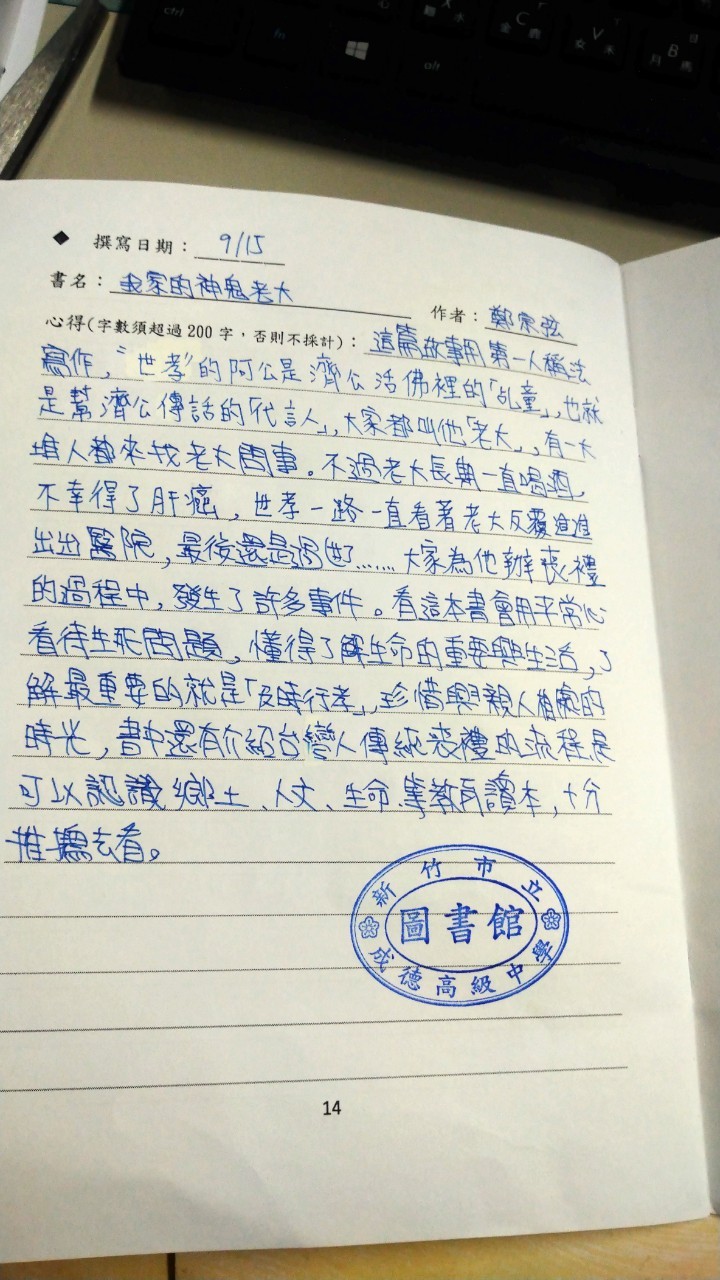 ctrl
fn
alt
C
金
V
女
B
月
◆ 撰寫日期：9/15
書名：我家的神鬼老大
作者：鄭宗弦
心得(字數須超過200字，否則不採計)：這篇故事用第一人稱法
寫作，"世孝"的阿公是濟公活佛裡的「乩童」，也就
是幫濟公傳話的「代言人」，大家都叫他「老大」，有一大
堆人都來找老大問事。不過老大長期一直喝酒，
不幸得了肝癌，世孝一路一直看著老大反覆進進
出出醫院，最後還是過世了……大家為他辦喪禮
的過程中，發生了許多事件。看這本書會用平常心
看待生死問題，懂得了解生命的重要與生活，了
解最重要的就是「及時行孝」，珍惜與親人相處的
時光，書中還有介紹台灣人傳統喪禮的流程，是
可以認識鄉土、人文、生命、等教育讀本，十分
推薦去看。
新竹市立
圖書館
成德高級中學
14